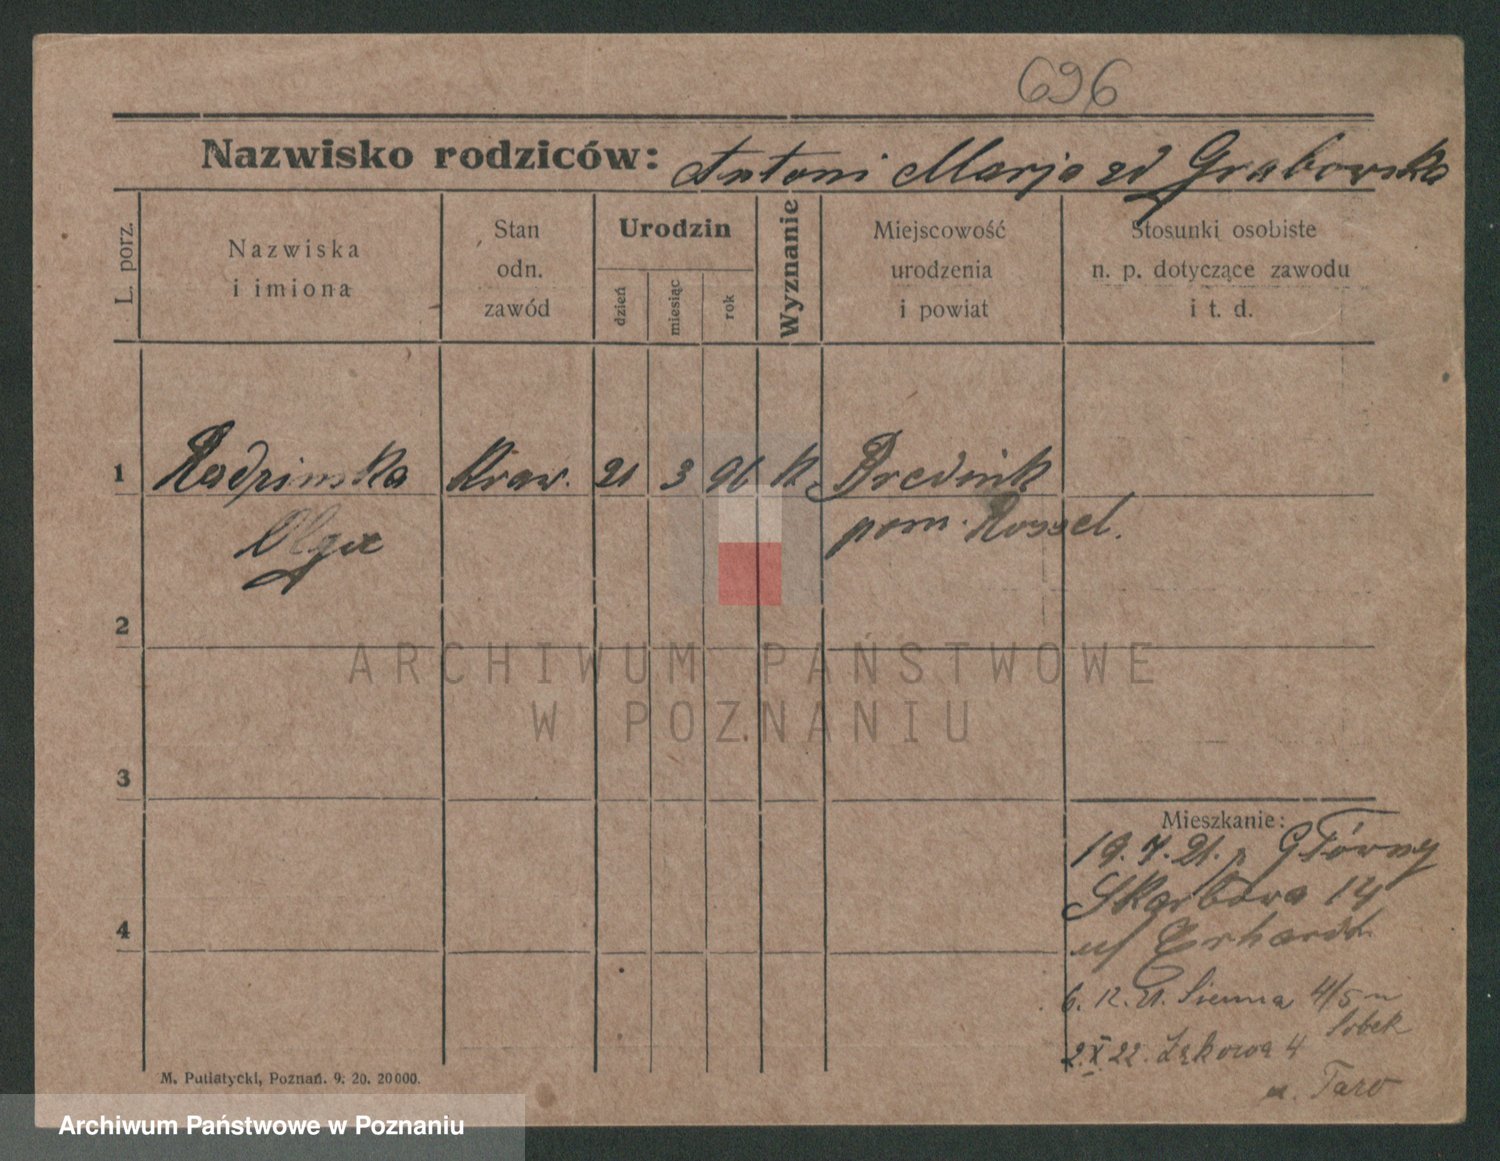 696
Nazwisko rodziców: Antoni Marja zd Grabowska
L. porz.
Nazwiska
i imiona
Stan
odn.
zawód
Urodzin
dzień
miesiąc
rok
Wyznanie
Miejscowość
urodzenia
i powiat
Stosunki osobiste
n. p. dotyczące zawodu
i t. d.
1 Radzimska Kraw. 21 3 96 k. Bredink
Olga pow. Rossel.
2
ARCHIWUM PAŃSTWOWE
W POZNANIU
3
Mieszkanie:
19. 7. 21. p Główny
Skarbowa 14
u/ Erhardt
4
6. 12. 21. Sienna 4/5 u
Sobek
2. X. 22. Łąkowa 4
u. Taro
M. Putiatycki, Poznań. 9. 20. 20000.
Archiwum Państwowe w Poznaniu